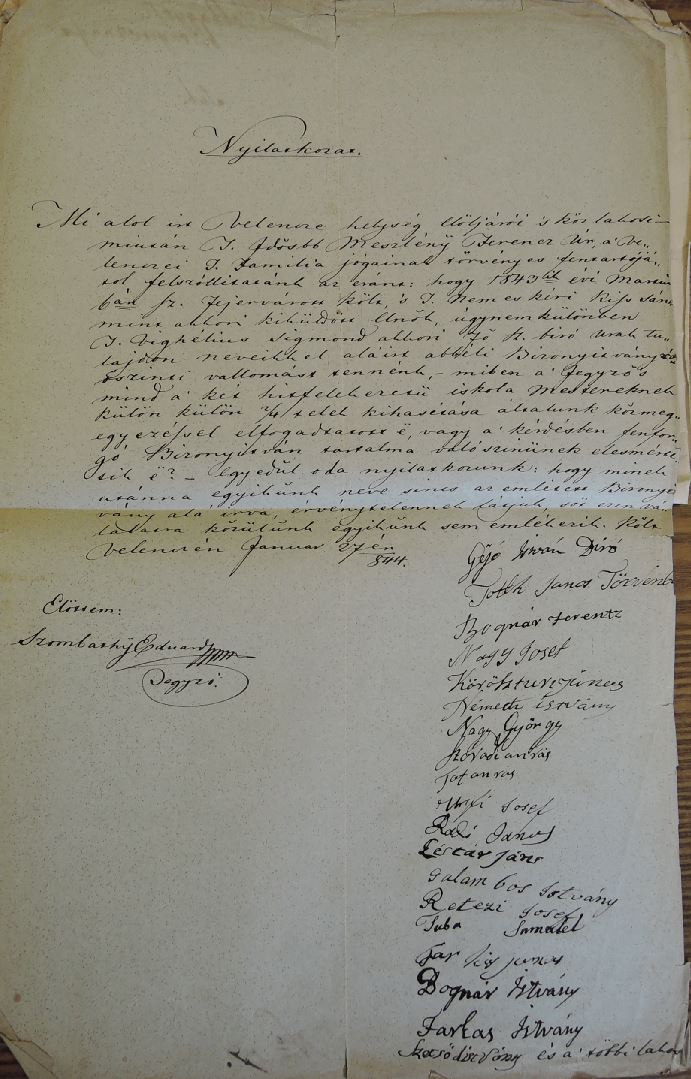 Nyilatkozat.
Mi alol irt Velencze helység Elöljárói 's köz lakosi –
miután T. Idősbb Meszlényi Ferencz Úr, a' Ve-
lenczei T. Familia jógainak törvényes fentartójá-
tol felszóllitatánk az eránt: hogy 1843ik évi Martius
ban Sz. Fejérvárott költ, 's T. Nemeskéri Kiss
mint akkori kiküldött Elnök, úgynemkülönben
T. Vighelius Sigmond akkori Fő Sz. biró urak tu-
lajdon neveikkel aláirt abbéli Bizonyitványra
őszinti vallomást tennénk, – miben a' Jegyzős
mind a' két hitfelekezetű iskola Mestereknek
külön külön 2/4 telek kihasitása általunk közmeg-
egyezéssel elfogadtatott é, vagy a' kérdésben fenfor-
gó Bizonyitván tartalma valószinűnek elesmérte-
tik é? – egyedűl oda nyilatkozunk: hogy minek
utánna egyikünk neve sincs az emlitett Bizonyit-
vány alá irva, érvénytelennek látjuk, sőt ezen
közűlünk egyikünk sem emlékezik. Költ
Velenczén Januar 27én
844.
Előttem:
Szombathÿ Eduard
Jegyző.
Géjó István Biró
Tothh Janos Törvénb
Bognár Ferentz
Nagy Josef
Németh István
Nagy György
Tot anras
Josef
Rádi Janos
Lestár Jáns
Galambos Istvány
Retezi Josef
Tuba Samuel
Far
Bognár Istvány
Farkas Istvány
és a' többi lakos